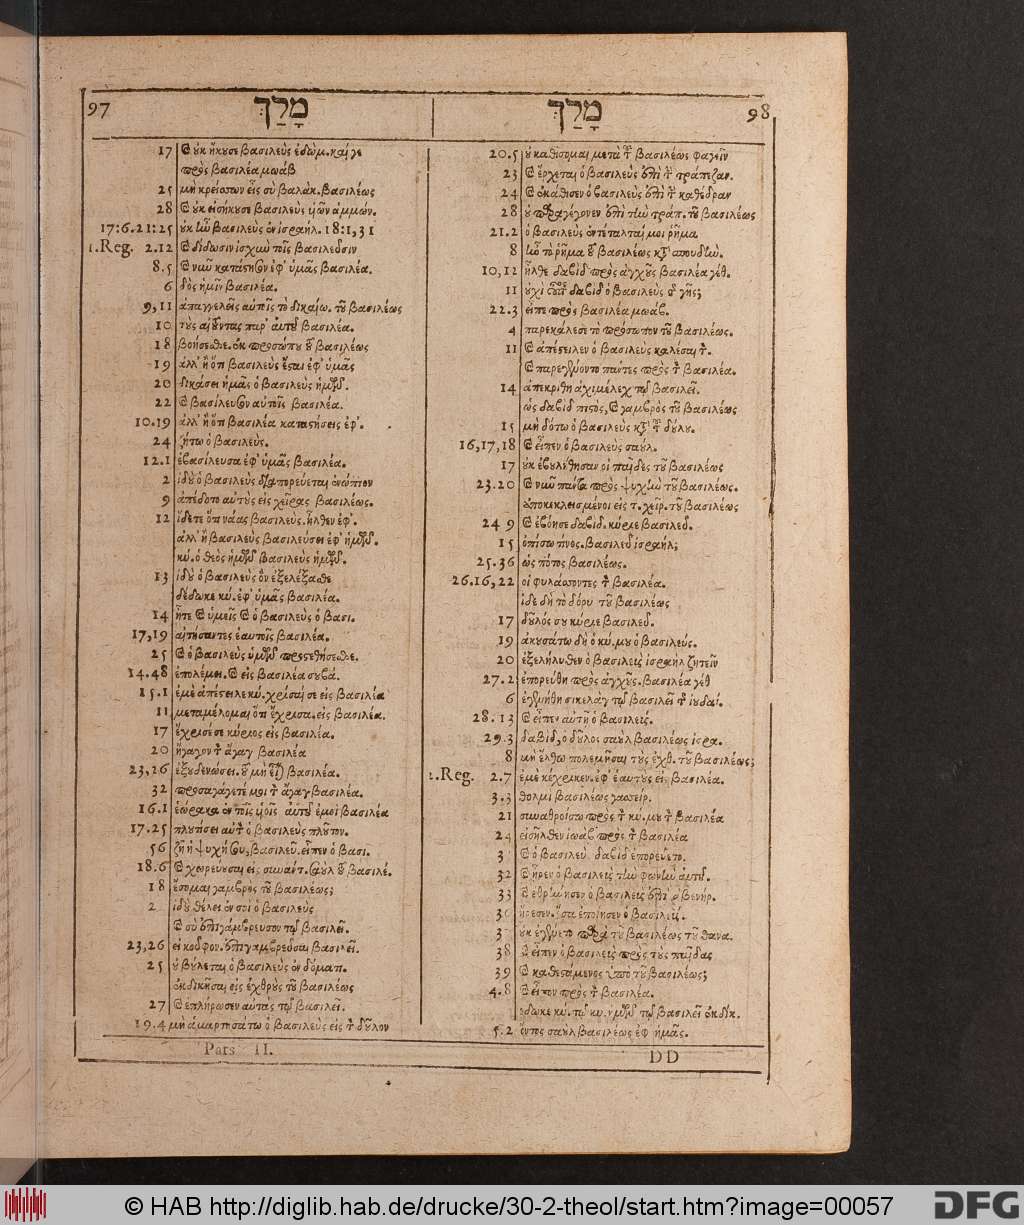 97 מָלַךְ
17 ϗ οὐκ ἤκουσε βασιλεὺς ἐδώμ. καί γε
πρὸς βασιλέα μωάβ
25 μὴ κρείσσων εἶς σὺ βαλάκ. βασιλέως
28 ϗ οὐκ εἰσήκουσε βασιλεὺς υἱῶν ἀμμών.
17:6. 21:25 οὐκ ἦν βασιλεὺς ἐν ἰσραήλ. 18:1, 31
1.Reg. 2.12 ϗ δίδωσιν ἰσχὺν τοῖς βασιλεῦσιν
8.5 ϗ νῦν κατάστησον ἐφ' ὑμᾶς βασιλέα.
6 δὸς ἡμῖν βασιλέα.
9, 11 ἀπαγγελεῖς αὐτοῖς τὸ δικαίω. τοῦ βασιλέως
10 τοὺς αἰτοῦντας παρ' αὐτοῦ βασιλέα.
18 βοήσεσθε. ἐκ προσώπου τοῦ βασιλέως
19 ἀλλ' ἢ ὅτι βασιλεὺς ἔσται ἐφ' ὑμᾶς
20 δικάσει ἡμᾶς ὁ βασιλεὺς ἡμῶν.
22 ϗ βασίλευσον αὐτοῖς βασιλέα.
10.19 ἀλλ' ἢ ὅτι βασιλέα καταστήσεις ἐφ'.
24 ζήτω ὁ βασιλεὺς.
12.1 ἐβασίλευσα ἐφ' ὑμᾶς βασιλέα.
2 ἰδοὺ ὁ βασιλεὺς διαπορεύεται ἐνώπιον
9 ἀπέδοτο αὐτοὺς εἰς χεῖρας βασιλέως.
12 ἴδετε ὅτι νάας βασιλεὺς. ἦλθεν ἐφ'.
ἀλλ' ἢ βασιλεὺς βασιλεύσει ἐφ' ἡμῶν.
κύ. ὁ θεὸς ἡμῶν βασιλεὺς ἡμῶν.
13 ἰδοὺ ὁ βασιλεὺς ὃν ἐξελέξασθε
δέδωκε κύ. ἐφ' ὑμᾶς βασιλέα.
14 ἦτε ϗ ὑμεῖς ϗ ὁ βασιλεὺς ὁ βασι.
17, 19 αἰτήσαντες ἑαυτοῖς βασιλέα.
25 ϗ ὁ βασιλεὺς ὑμῶν προστεθήσεσθε.
14.48 ἐπολέμει. ϗ εἰς βασιλέα σουβά.
15.1 ἐμὲ ἀπέστειλε κύ. χρῖσαί σε εἰς βασιλέα
11 μεταμέλομαι ὅτι ἔχρισα. εἰς βασιλέα.
17 ἔχρισέ σε κύριος εἰς βασιλέα.
20 ἤγαγον τὸν ἄγαγ βασιλέα
23, 26 ἐξουδενώσει. τοῦ μὴ εἶναι βασιλέα.
32 προσαγάγετέ μοι τὸν ἄγαγ βασιλέα.
16.1 ἑώρακα ἐν τοῖς υἱοῖς αὐτοῦ ἐμοὶ βασιλέα
17.25 πλουτίσει αὐτὸν ὁ βασιλεὺς πλοῦτον.
56 ζῇ ἡ ψυχή σου, βασιλεῦ. εἶπεν ὁ βασι.
18.6 ϗ χωρεύουσαι εἰς συνάντ. σαοὺλ τοῦ βασιλέ.
18 ἔσομαι γαμβρὸς τοῦ βασιλέως;
2 ἰδοὺ θέλει ἐν σοὶ ὁ βασιλεὺς
ϗ σὺ ἐπιγάμβρευσον τῷ βασιλεῖ.
23, 26 εἰ κοῦφον. ἐπιγαμβρεῦσαι βασιλεῖ.
25 οὐ βούλεται ὁ βασιλεὺς ἐν δόματι.
ἐκδικῆσαι εἰς ἐχθροὺς τοῦ βασιλέως
27 ϗ ἐπλήρωσεν αὐτὰς τῷ βασιλεῖ.
19.4 μὴ ἁμαρτησάτω ὁ βασιλεὺς εἰς τὸν δοῦλον
Pars II.
מָלַךְ 98
20.5 οὐ καθίσομαι μετὰ τοῦ βασιλέως φαγεῖν
23 ϗ ἔρχεται ὁ βασιλεὺς ἐπὶ τὴν τράπεζαν.
24 ϗ ἐκάθισεν ὁ βασιλεὺς ἐπὶ τὴν καθέδραν
28 οὐ παραγέγονεν ἐπὶ τὴν τράπ. τοῦ βασιλέως
21.2 ὁ βασιλεὺς ἐντέταλταί μοι ῥῆμα
8 ἦν τὸ ῥῆμα τοῦ βασιλέως κατὰ σπουδὴν.
10, 12 ἦλθε δαβὶδ πρὸς ἀγχοῦς βασιλέα γέθ.
11 οὐχὶ οὗτος δαβὶδ ὁ βασιλεὺς τῆς γῆς;
22.3 εἶπε πρὸς βασιλέα μωάβ.
4 παρεκάλεσε τὸ πρόσωπον τοῦ βασιλέως.
11 ϗ ἀπέστειλεν ὁ βασιλεὺς καλέσαι τὸν.
ϗ παρεγένοντο πάντες πρὸς τὸν βασιλέα.
14 ἀπεκρίθη ἀχιμέλεχ τῷ βασιλεῖ.
ὡς δαβὶδ πιστὸς, ϗ γαμβρὸς τοῦ βασιλέως
15 μὴ δότω ὁ βασιλεὺς κατὰ τοῦ δούλου.
16, 17, 18 ϗ εἶπεν ὁ βασιλεὺς σαούλ.
17 οὐκ ἐβουλήθησαν οἱ παῖδες τοῦ βασιλέως
23.20 ϗ νῦν πάντα πρὸς ψυχὴν τοῦ βασιλέως.
ἀποκεκλεισμένοι εἰς τ. χεῖρ. τοῦ βασιλέως
24 9 ϗ ἐβόησε δαβὶδ. κύριε βασιλεῦ.
15 ὀπίσω τίνος. βασιλεῦ ἰσραήλ;
25.36 ὡς πότος βασιλέως.
26.16, 22 οἱ φυλάσσοντες τὸν βασιλέα.
ἰδὲ δὴ τὸ δόρυ τοῦ βασιλέως
17 δοῦλός σου κύριε βασιλεῦ.
19 ἀκουσάτω δὴ ὁ κύ. μου ὁ βασιλεὺς.
20 ἐξελήλυθεν ὁ βασιλεὺς ἰσραὴλ ζητεῖν
27.2 ἐπορεύθη πρὸς ἀγχοῦς. βασιλέα γέθ
6 ἐγενήθη σικελὰγ τῷ βασιλεῖ τοῦ ἰούδα.
28.13 ϗ εἶπεν αὐτῇ ὁ βασιλεὺς.
29.3 δαβὶδ, ὁ δοῦλος σαοὺλ βασιλέως ἰσρα.
8 μὴ ἔλθω πολεμῆσαι τοὺς ἐχθ. τοῦ βασιλέως;
2.Reg. 2.7 ἐμὲ κέχρικεν. ἐφ' ἑαυτοὺς εἰς βασιλέα.
3.3 θολμὶ βασιλέως γεσσείρ.
21 συναθροίσω πρὸς τὸν κύ. μου τὸν βασιλέα
24 εἰσῆλθεν ἰωὰβ πρὸς τὸν βασιλέα
3 ϗ ὁ βασιλεὺ. δαβὶδ ἐπορεύετο.
32 ϗ ἦρεν ὁ βασιλεὺς τὴν φωνὴν αὐτοῦ.
33 ϗ ἐθρήνησεν ὁ βασιλεὺς ἐπὶ ἀβενήρ.
36 ἤρεσεν. ὅσα ἐποίησεν ὁ βασιλεύς.
3 οὐκ ἐγένετο παρὰ τοῦ βασιλέως τοῦ θανα.
38 ϗ εἶπεν ὁ βασιλεὺς πρὸς τοὺς παῖδας
39 ϗ καθεστάμενος ὑπὸ τοῦ βασιλέως;
4.8 ϗ εἶπον πρὸς τὸν βασιλέα.
ἔδωκε κύ. τῷ κυ. ἡμῶν τῷ βασιλεῖ ἐκδίκ.
5.2 ὄντος σαοὺλ βασιλέως ἐφ' ἡμᾶς.
DD
© HAB http://diglib.hab.de/drucke/30-2-theol/start.htm?image=00057
DFG